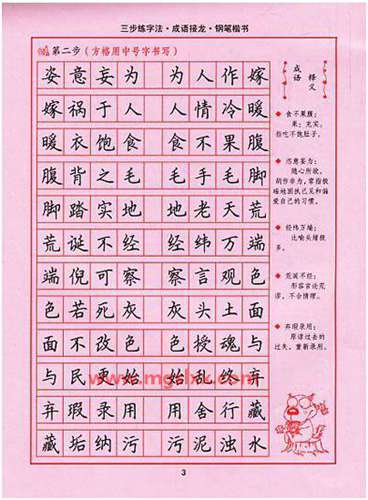 三步练字法·成语接龙·钢笔楷书
第二步（方格用中号字书写）
姿意妄为 为人作嫁
嫁祸于人 人情冷暖
暖衣饱食 食不果腹
腹背之毛 毛手毛脚
脚踏实地 地老天荒
荒诞不经 经纬万端
端倪可察 察言观色
色若死灰 灰头土面
面不改色 色授魂与
与民更始 始乱终弃
弃瑕录用 用舍行藏
藏垢纳污 污泥浊水
成语释义
食不果腹：
果：充实。
指吃不饱肚子。
恣意妄为：
随心所欲，
胡作非为，常指教
唆地固执己见和偏
爱自己的习惯。
经纬万端：
比喻头绪很
多。
荒诞不经：
形容言论荒
谬，不合情理。
弃瑕录用：
原谅过去的
过失，重新录用。
3